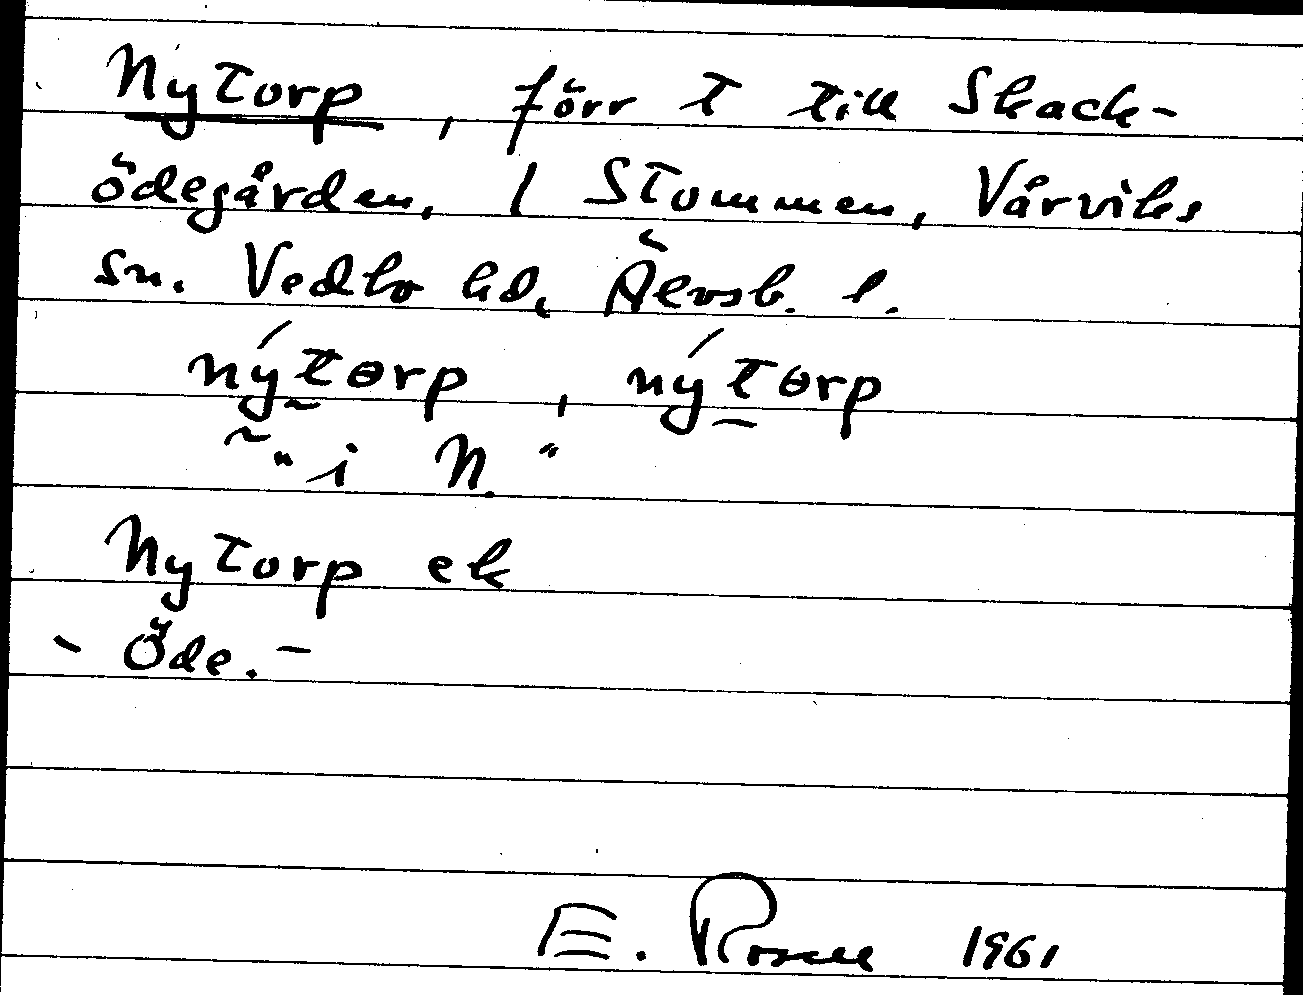 Nytorp, förr t till Skack-
ödegården, 1 Stommen, Vårviks
sn. Vedbo hd, Älvsb. l.
nýtɵrp, nýtɵrp
~ "i N."
Nytorp ek
- Öde. -
E. Rosell 1961